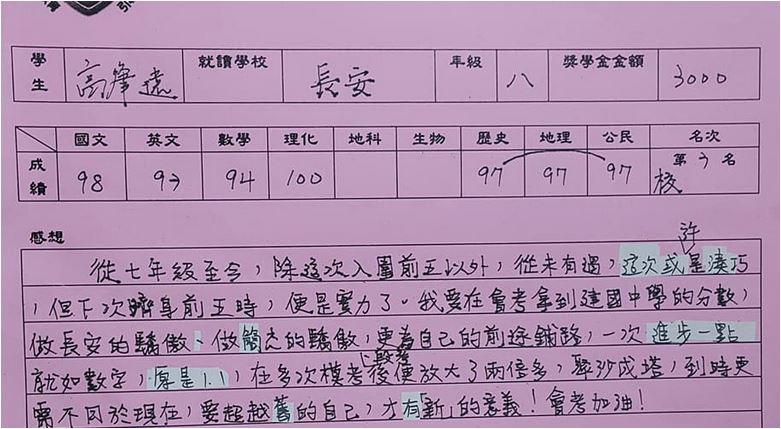 學生 高肇遠 就讀學校 長安 年級 八 獎學金金額 3000
國文 英文 數學 理化 地科 生物 歷史 地理 公民 名次
成績 98 97 94 100 97 97 97 校 第3名
感想
從七年級至今,除這次入圍前五以外,從未有過,這次或許是湊巧
,但下次躋身前五時,便是實力了。我要在會考拿到建國中學的分數,
做長安的驕傲、做簡杰的驕傲,更為自己的前途鋪路,一次進步一點
就如數字,原是1.1,在多次模考後便放大了兩倍多,聚沙成塔,到時更
需不同於現在,要超越舊的自己,才有「新」的意義!會考加油!